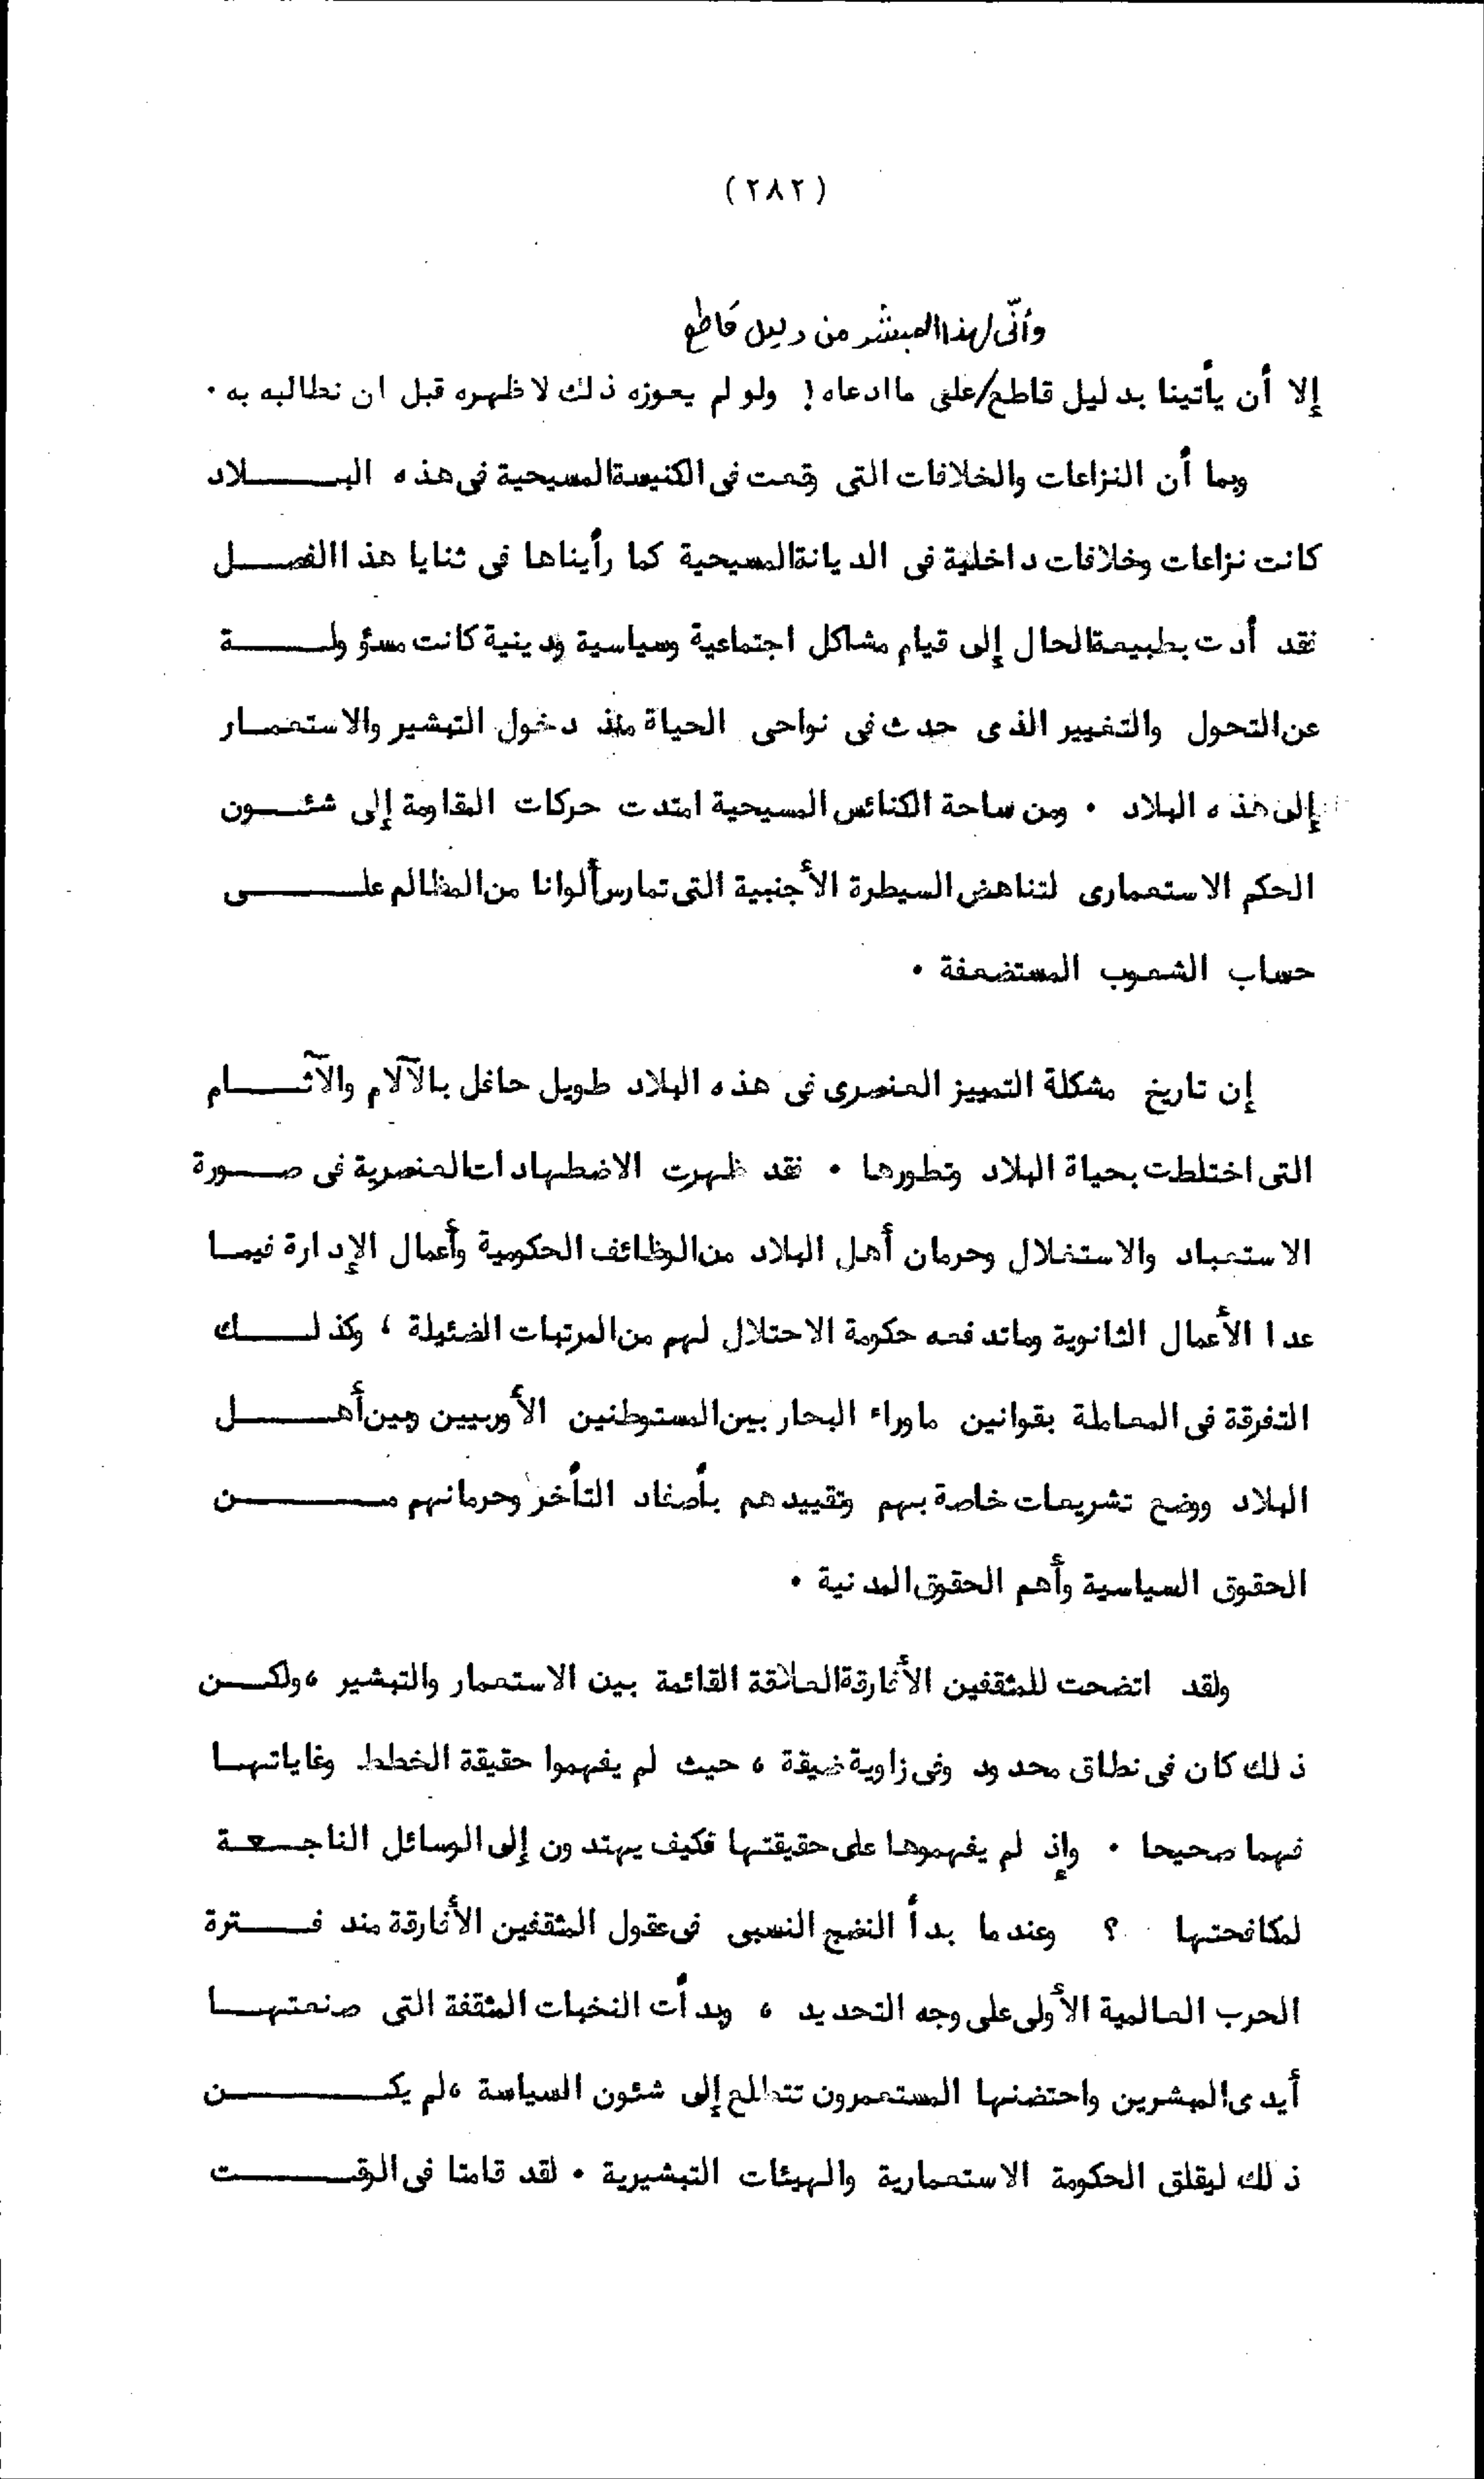 (٢٨٢)
وأنّى لهذا المبشر من دليل قاطع
إلا أن يأتينا بدليل قاطع/على ماادعاه! ولو لم يعوزه ذلك لاظهره قبل ان نطالبه به ٠
وبما أن النزاعات والخلافات التى وقعت فى الكنيسة المسيحية فى هذه البــــلاد
كانت نزاعات وخلافات داخلية فى الديانة المسيحية كما رأيناها فى ثنايا هذا الفصــــل
فقد أدت بطبيعة الحال إلى قيام مشاكل اجتماعية وسياسية ودينية كانت مسؤولــــة
عن التحول والتغيير الذى حدث فى نواحى الحياة منذ دخول التبشير والاستعمــار
إلى هذه البلاد ٠ ومن ساحة الكنائس المسيحية امتدت حركات المقاومة إلى شئــون
الحكم الاستعمارى لتناهض السيطرة الأجنبية التى تمارس ألوانا من المظالم علــــى
حساب الشعوب المستضعفة ٠
إن تاريخ مشكلة التمييز العنصرى فى هذه البلاد طويل حافل بالآلام والآثــــام
التى اختلطت بحياة البلاد وتطورها ٠ فقد ظهرت الاضطهادات العنصرية فى صــورة
الاستعباد والاستغلال وحرمان أهل البلاد من الوظائف الحكومية وأعمال الإدارة فيمــا
عدا الأعمال الثانوية وماتدفعه حكومة الاحتلال لهم من المرتبات الضئيلة ، وكذلــــك
التفرقة فى المعاملة بقوانين ماوراء البحار بين المستوطنين الأوربيين وبين أهــــل
البلاد ووضع تشريعات خاصة بهم وتقييدهم بأصفاد التأخر وحرمانهم مــــــن
الحقوق السياسية وأهم الحقوق المدنية ٠
ولقد اتضحت للمثقفين الأفارقة العلاقة القائمة بين الاستعمار والتبشير ،ولكــن
ذلك كان فى نطاق محدود وفى زاوية ضيقة ، حيث لم يفهموا حقيقة الخطط وغاياتهــا
فهما صحيحا ٠ وإذ لم يفهموها على حقيقتها فكيف يهتدون إلى الوسائل الناجــعة
لمكافحتها ؟ وعندما بدأ النضج النسبى فى عقول المثقفين الأفارقة منذ فــــترة
الحرب العالمية الأولى على وجه التحديد ، وبدأت النخبات المثقفة التى صنعتهــا
أيدى المبشرين واحتضنها المستعمرون تتطلع إلى شئون السياسة ،لم يكــــــن
ذلك ليقلق الحكومة الاستعمارية والهيئات التبشيرية ٠ لقد قامتا فى الوقــــــت